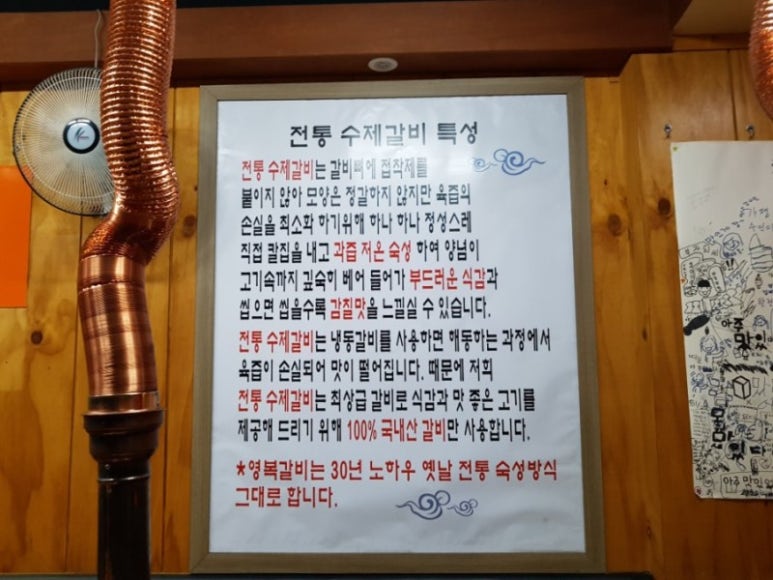 전통 수제갈비 특성
전통 수제갈비는 갈비뼈에 접착제를
붙이지 않아 모양은 정갈하지 않지만 육즙의
손실을 최소화 하기위해 하나 하나 정성스레
직접 칼집을 내고 과즙 저온 숙성 하여 양념이
고기속까지 깊숙히 베어 들어가 부드러운 식감과
씹으면 씹을수록 감칠맛을 느낄실 수 있습니다.
전통 수제갈비는 냉동갈비를 사용하면 해동하는 과정에서
육즙이 손실되어 맛이 떨어집니다. 때문에 저희
전통 수제갈비는 최상급 갈비로 식감과 맛 좋은 고기를
제공해 드리기 위해 100% 국내산 갈비만 사용합니다.
*영복갈비는 30년 노하우 옛날 전통 숙성방식
그대로 합니다.
아주
맛있